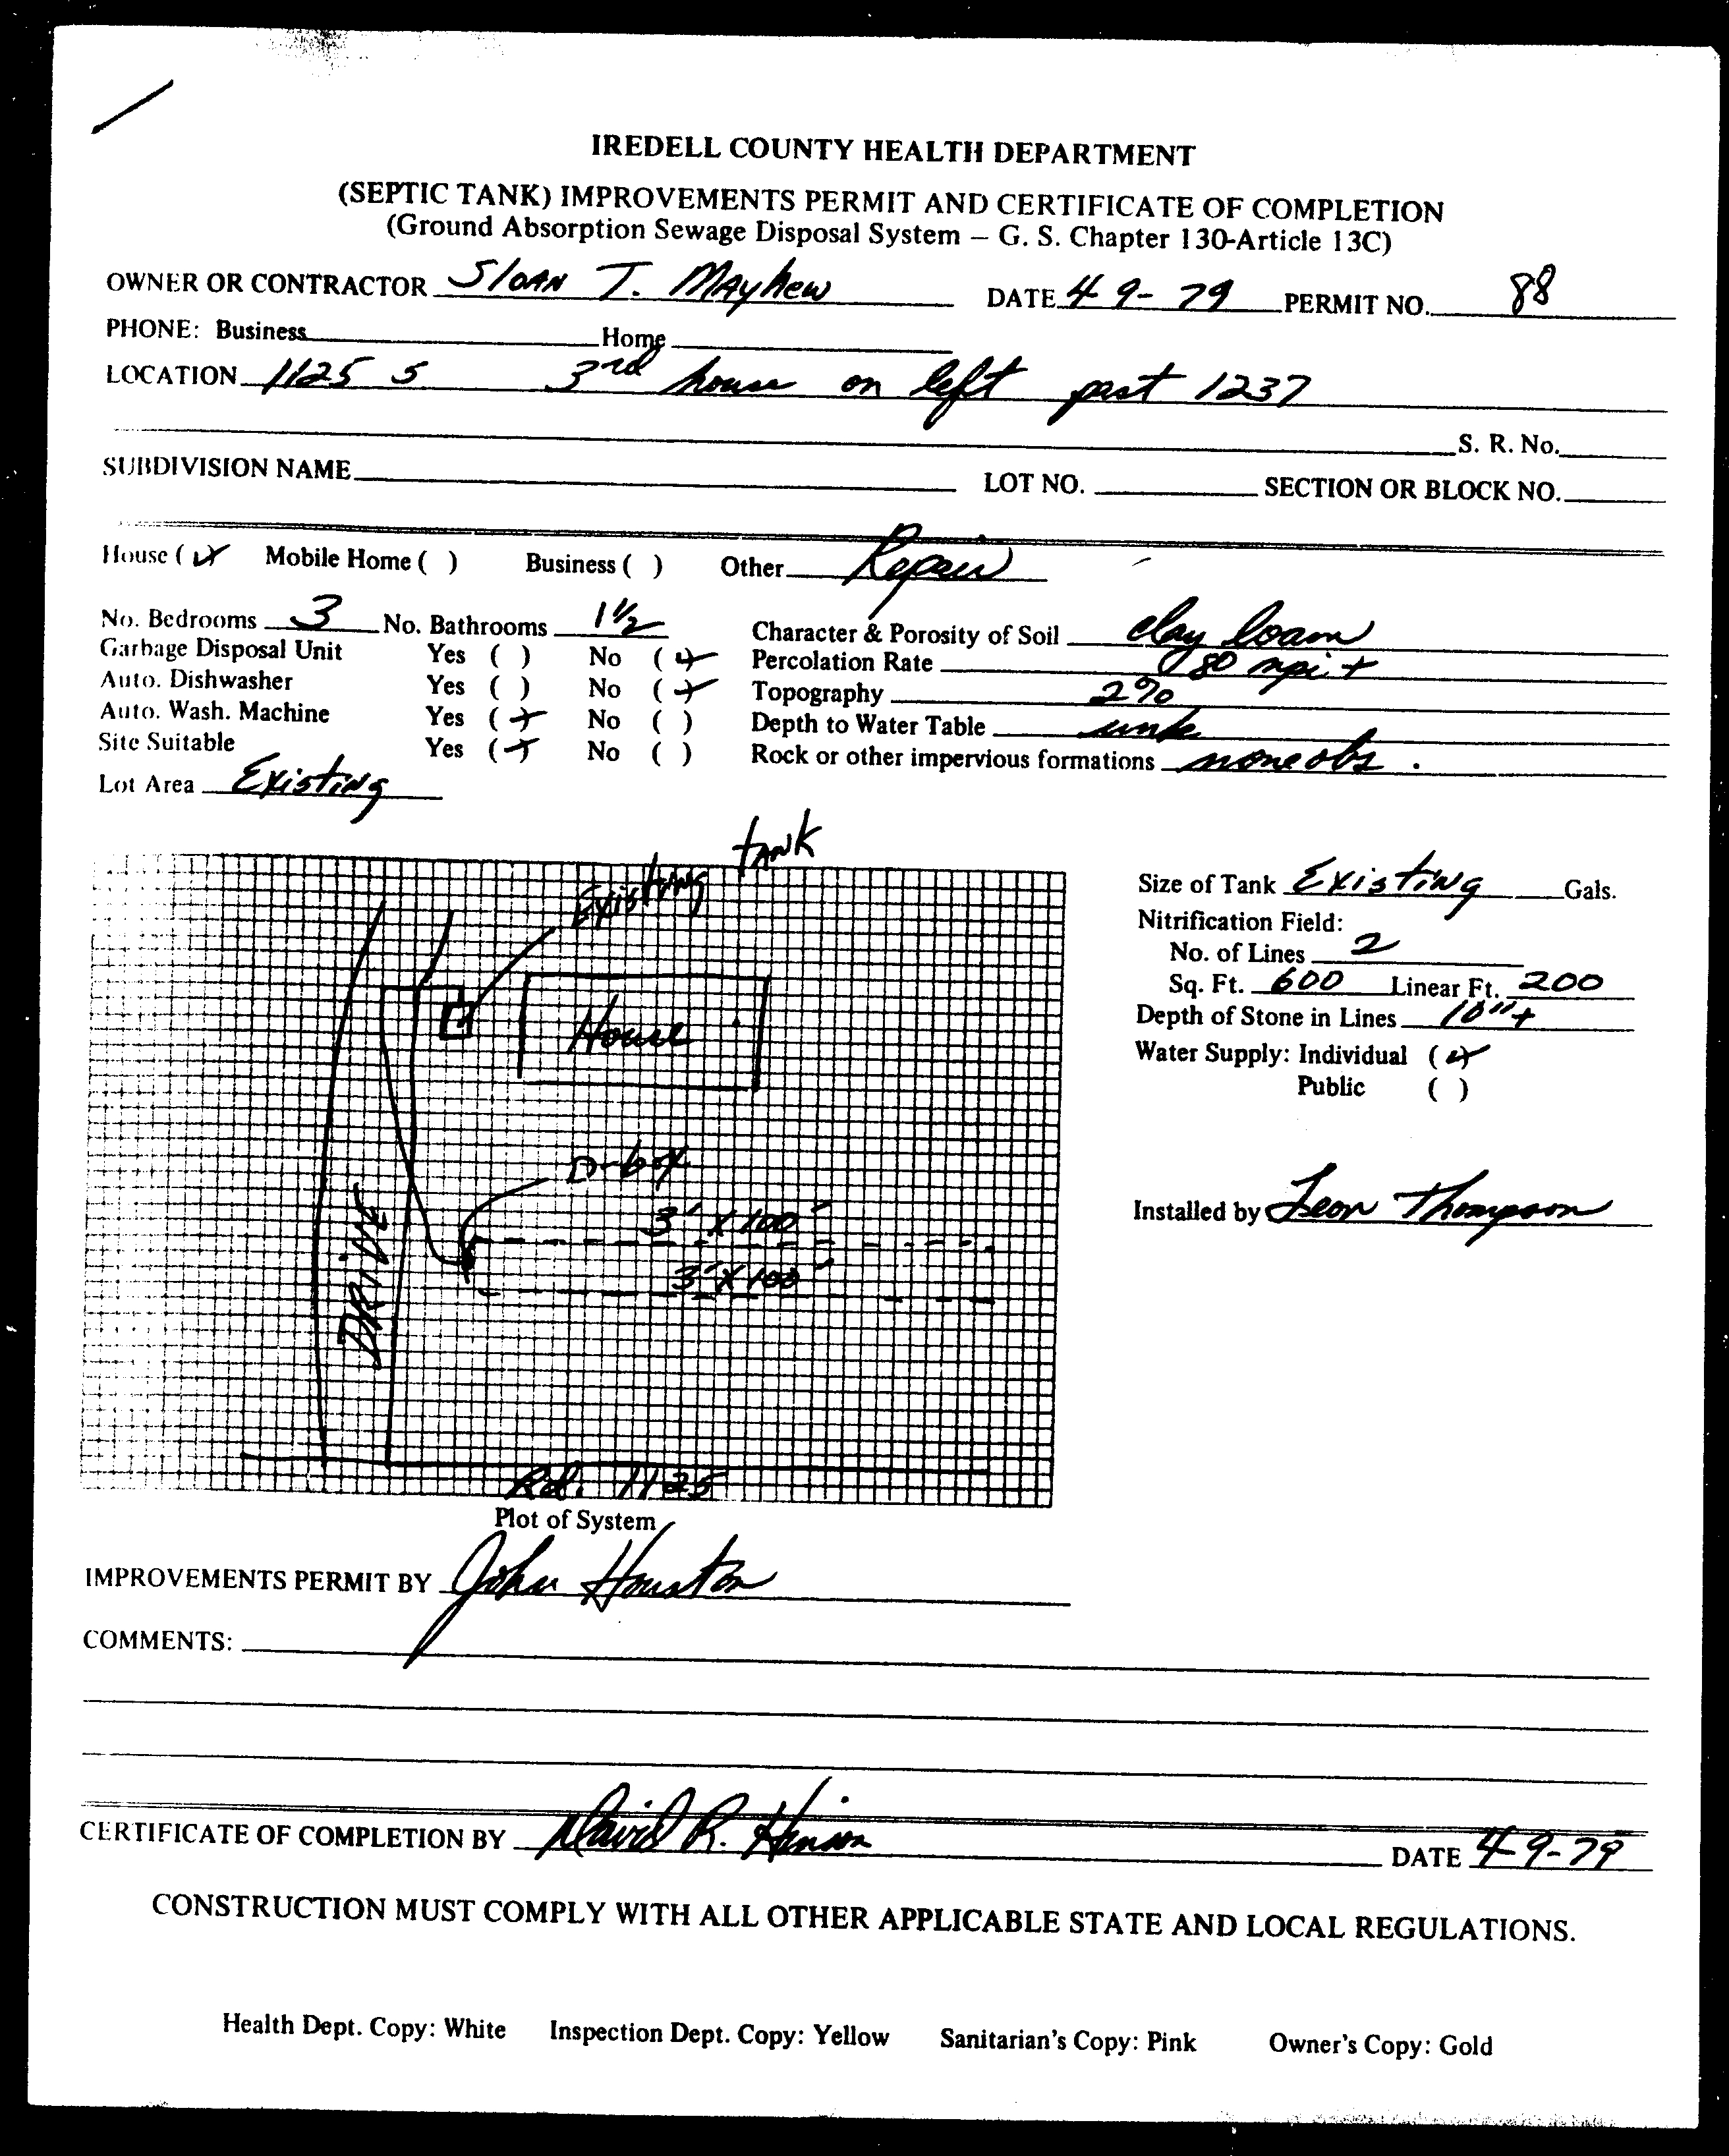 IREDELL COUNTY HEALTH DEPARTMENT
(SEPTIC TANK) IMPROVEMENTS PERMIT AND CERTIFICATE OF COMPLETION
(Ground Absorption Sewage Disposal System – G. S. Chapter 130-Article 13C)
OWNER OR CONTRACTOR Sloan T. Mayhew DATE 4-9-79 PERMIT NO. 88
PHONE: Business Home
LOCATION 1125 S 3rd house on left past 1237
S. R. No.
SUBDIVISION NAME LOT NO. SECTION OR BLOCK NO.
House (✓) Mobile Home ( ) Business ( ) Other Repair
No. Bedrooms 3 No. Bathrooms 1 1/2 Character & Porosity of Soil clay loam
Garbage Disposal Unit Yes ( ) No (✓) Percolation Rate 80 mpi +
Auto. Dishwasher Yes ( ) No (✓) Topography 2%
Auto. Wash. Machine Yes (✓) No ( ) Depth to Water Table unk
Site Suitable Yes (✓) No ( ) Rock or other impervious formations none obs.
Lot Area Existing
Existing tank
House
D-box
3' X 100'
3' X 100'
DRIVE
Rd. 1125
Plot of System
Size of Tank Existing Gals.
Nitrification Field:
No. of Lines 2
Sq. Ft. 600 Linear Ft. 200
Depth of Stone in Lines 10"+
Water Supply: Individual (✓)
Public ( )
Installed by Leon Thompson
IMPROVEMENTS PERMIT BY John Houston
COMMENTS:
CERTIFICATE OF COMPLETION BY David R. Hinson DATE 4-9-79
CONSTRUCTION MUST COMPLY WITH ALL OTHER APPLICABLE STATE AND LOCAL REGULATIONS.
Health Dept. Copy: White Inspection Dept. Copy: Yellow Sanitarian's Copy: Pink Owner's Copy: Gold